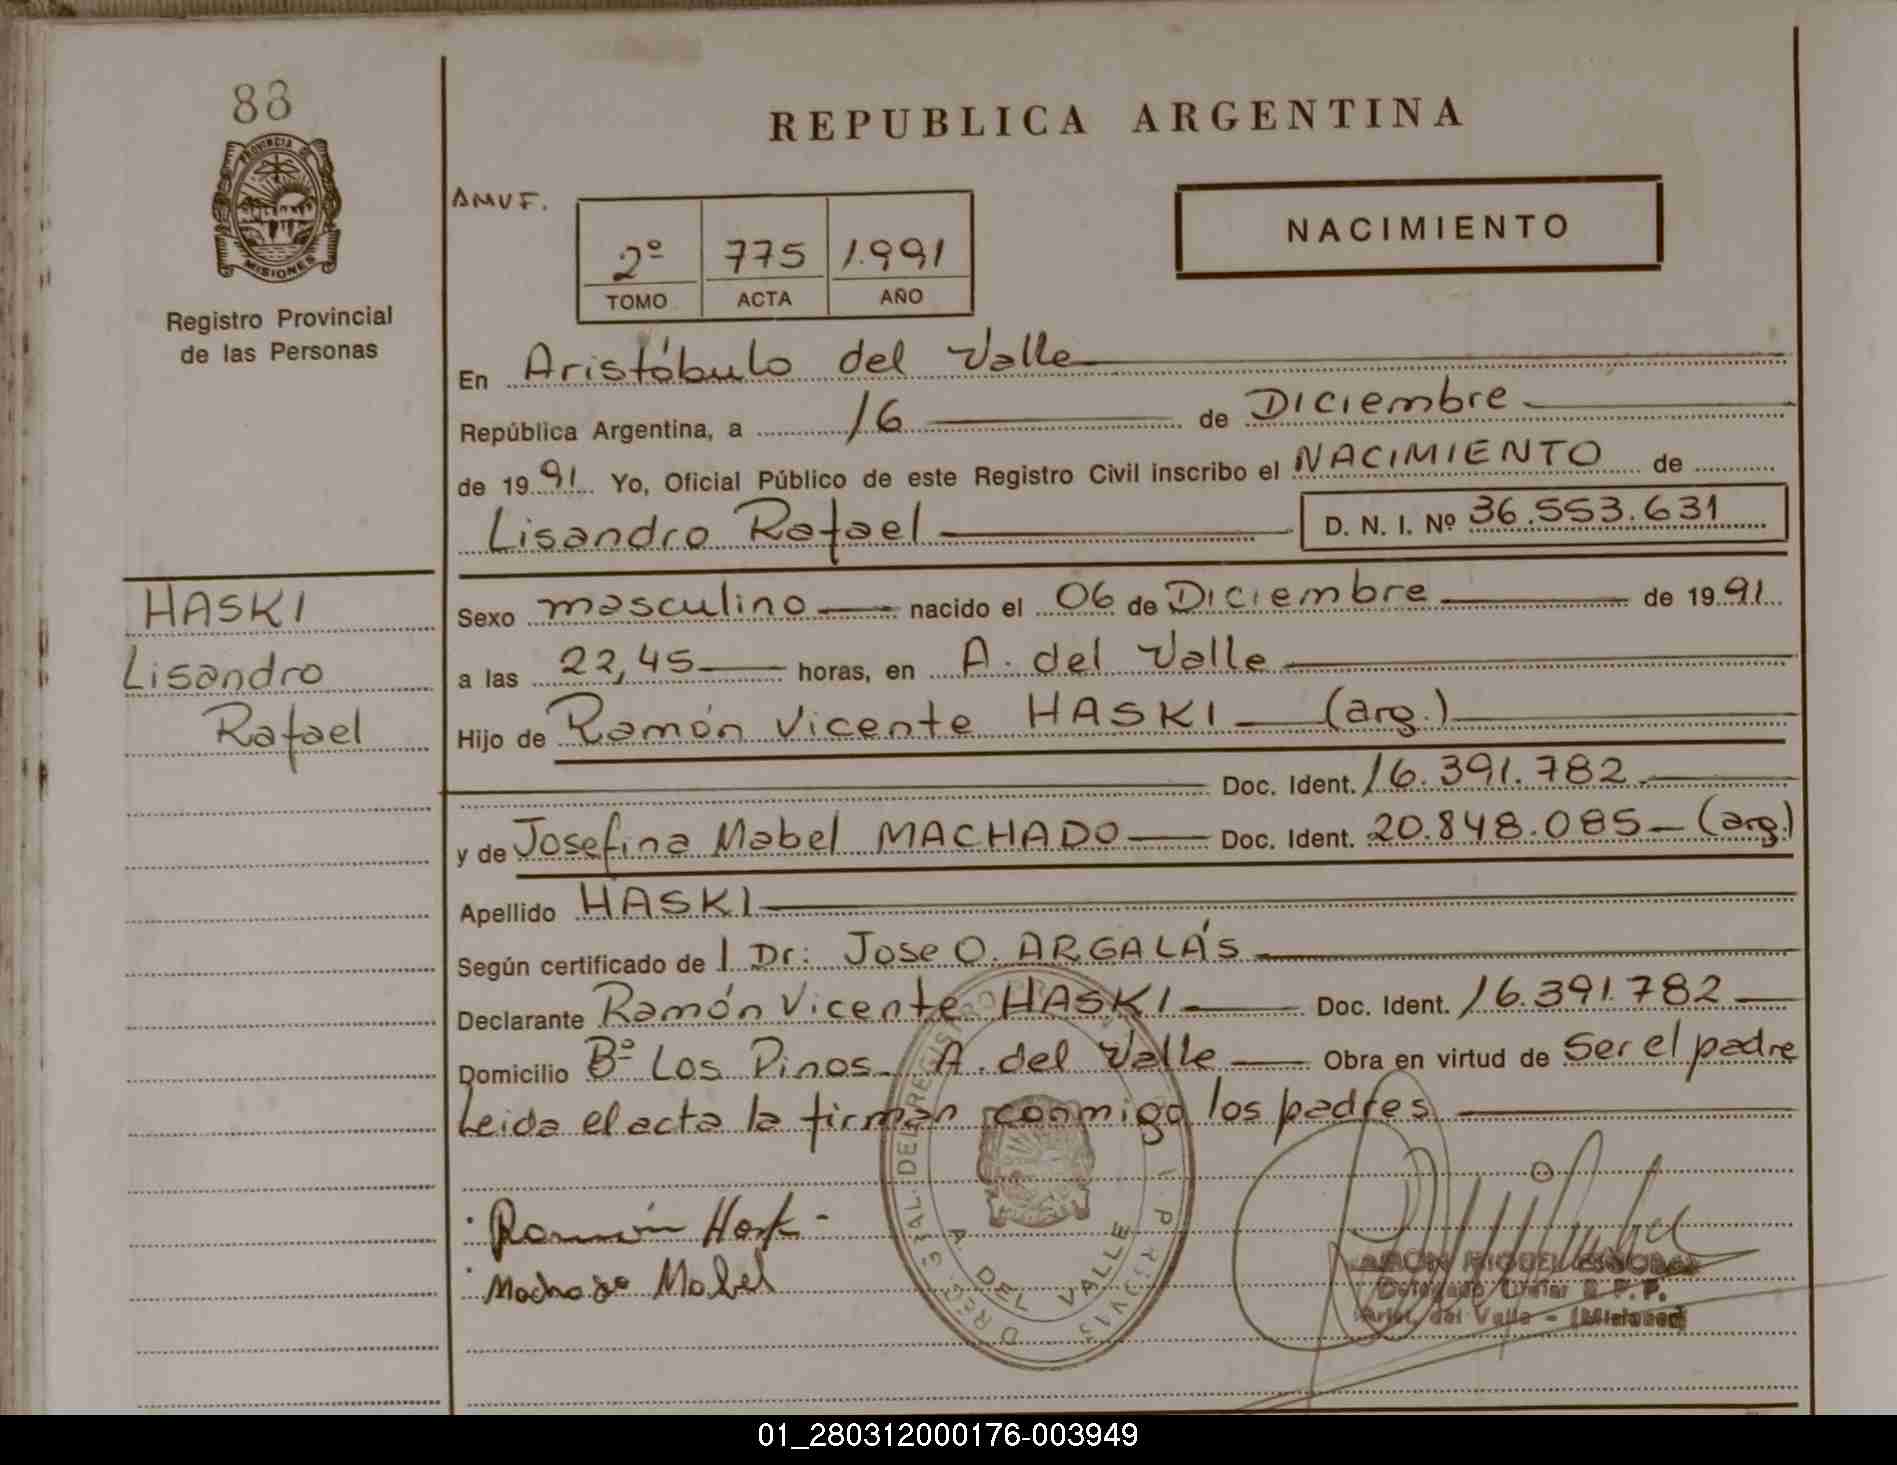 88
PROVINCIA DE
MISIONES
Registro Provincial
de las Personas
HASKI
Lisandro
Rafael
REPUBLICA ARGENTINA
AMVF.
2º 775 1.991
TOMO ACTA AÑO
NACIMIENTO
En Aristóbulo del Valle
República Argentina, a 16 de Diciembre
de 1991 Yo, Oficial Público de este Registro Civil inscribo el NACIMIENTO de
Lisandro Rafael D. N. I. Nº 36.553.631
Sexo masculino nacido el 06 de Diciembre de 1991
a las 22,45 horas, en A. del Valle
Hijo de Ramón Vicente HASKI (arg.)
Doc. Ident. 16.391.782
y de Josefina Mabel MACHADO Doc. Ident. 20.848.085 (arg.)
Apellido HASKI
Según certificado de l Dr: Jose O. ARGALÁS
Declarante Ramón Vicente HASKI Doc. Ident. 16.391.782
Domicilio Bº Los Pinos A. del Valle Obra en virtud de Ser el padre
Leida el acta la firman conmigo los padres
Ramón Hask
Machado Mabel
A. DEL VALLE
MIGUEL
Delegado Titular R. P. P.
Arist. del Valle - (Misiones)
01_280312000176-003949